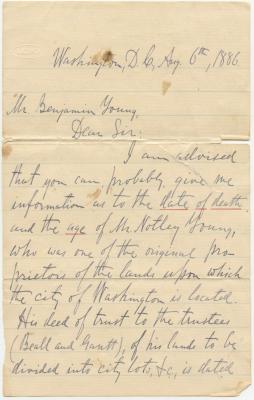 Washington, D.C., Aug. 6th, 1886
Mr. Benjamin Young,
Dear Sir:
I am advised
that you can, probably, give me
information as to the date of death
and the age of Mr. Notley Young,
who was one of the original pro
prietors of the lands upon which
the city of Washington is located.
His deed of trust to the trustees
(Beall and Gantt), of his lands to be
divided into city lots, &c., is dated